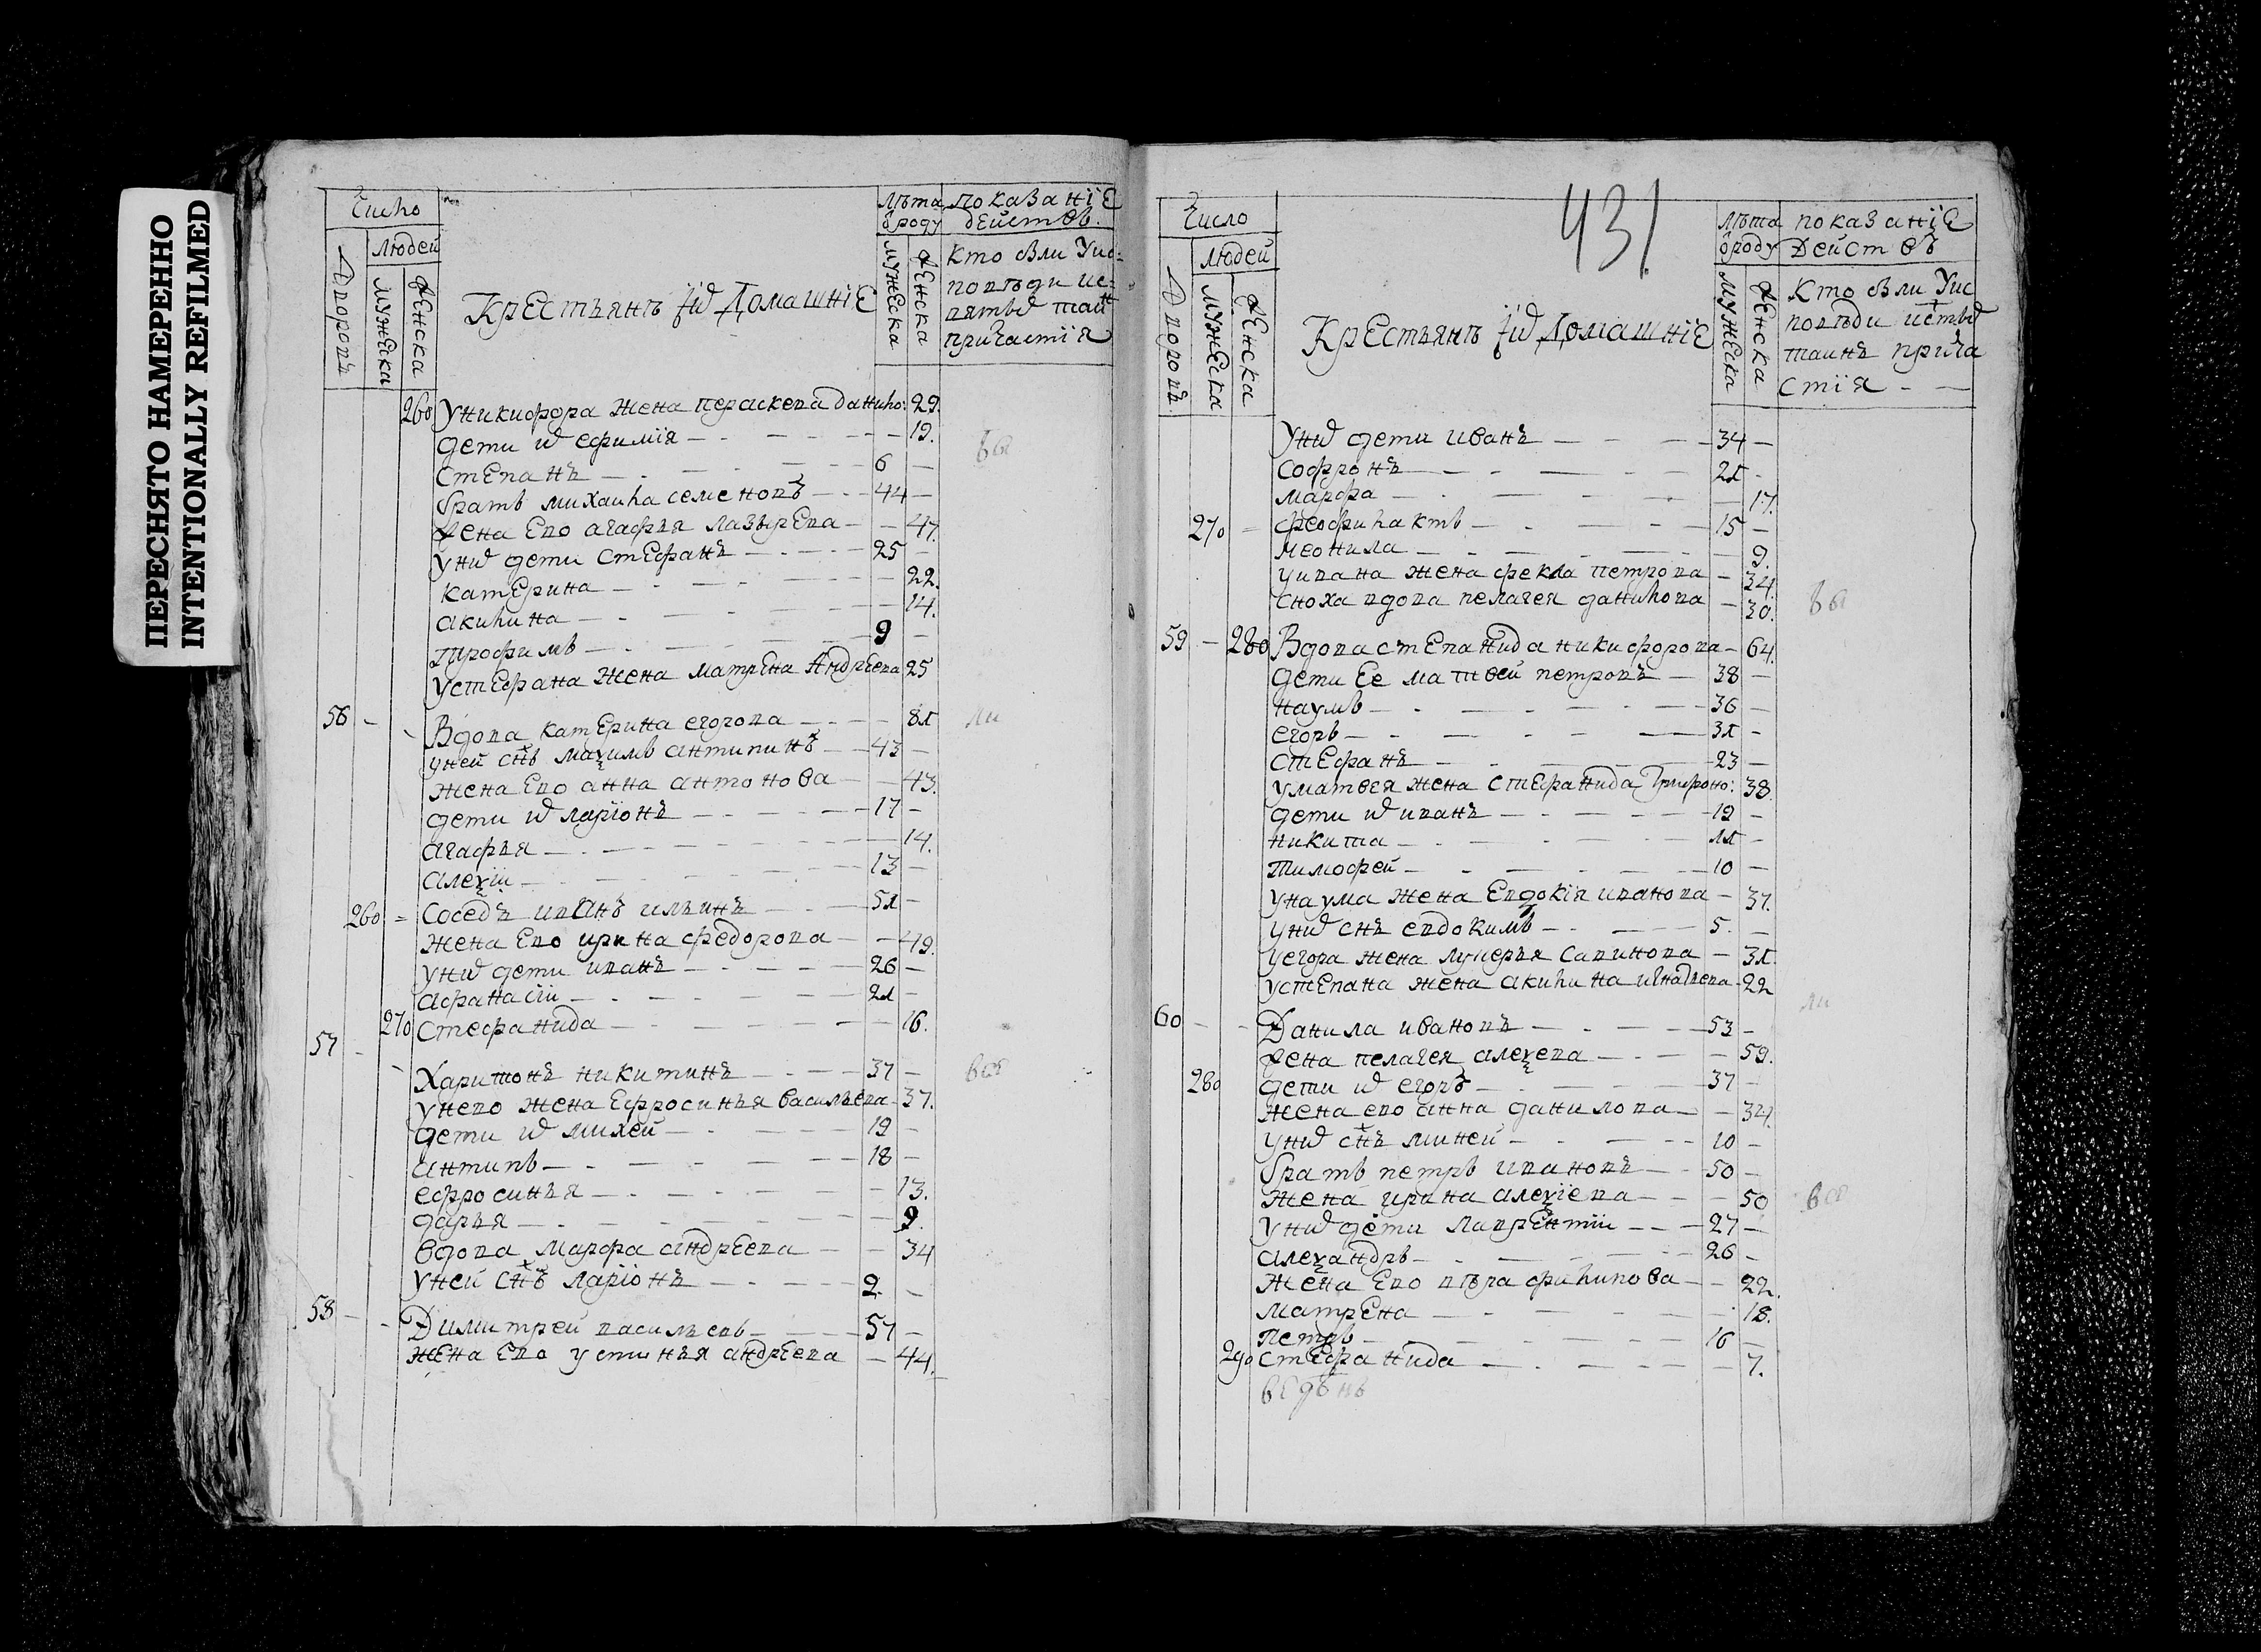 ПЕРЕСНЯТО НАМЕРЕННО
INTENTIONALLY REFILMED
Число
Людей
Дворовъ
Мужеска
Женска
Крестьянъ ихъ Домашніе
Лѣта
ѿроду
Мужеска
Женска
показаніе
действъ
кто были у ис-
поведи и с-
вятыхъ таинъ
причастія
260 У никифора жена пераскева данило: 29.
дети ихъ ефимія 12.
степанъ 6
братъ михаила семеновъ 44
жена ево агафья лазырева 47.
у нихъ дети стефанъ 25
катерина 22.
акилина 14.
трофимъ 9
у стефана жена матрена Андреева 25
56 Вдова катерина егорова 81
у ней снъ маѯимъ антипинъ 43
жена ево анна антонова 43.
дети ихъ ларіонъ 17
агафья 14.
алеѯіи 13
260 соседъ иванъ ильинъ 51
жена ево ирина федорова 49.
у нихъ дети иванъ 26
афанасіи 21
270 стефанида 16.
57 Харитонъ никитинъ 37
у нево жена ефросинья васильева 37.
дети ихъ михей 19
антипъ 18
ефросинья 13.
дарья 9.
вдова марфа андреева 34
у ней снъ ларіонъ 2
58 Димитрей васильевъ 57
жена ево устинья андреева 44.
431
Число
Людей
Дворовъ
Мужеска
Женска
Крестьянъ ихъ Домашніе
Лѣта
ѿроду
Мужеска
Женска
показаніе
Действъ
Кто были у ис
поведи и стыхъ
таинъ прича
стія
У нихъ дети иванъ 34
софронъ 21
марфа 17.
270 феофилактъ 15
неонила 9.
у ивана жена фекла петрова 34.
сноха вдова пелагея данилова 30.
59 280 Вдова степанида никифорова 64.
дети ее матвей петровъ 38
наумъ 36
егоръ 31
стефанъ 23
у матвея жена стефанида 38.
дети ихъ иванъ 12
никита 11
тимофей 10
у наума жена евдокія иванова 37.
у нихъ снъ евдокимъ 5.
у егора жена лукерья савинова 31
у степана жена акилина игнатьева 22
60 Данила ивановъ 53
жена пелагея алеѯева 59.
280 дети ихъ егоръ 37
жена ево анна данилова 34.
у нихъ снъ миней 10
братъ петръ ивановъ 50
жена ирина алеѯіева 50
у нихъ дети лаврентіи 27
алеѯандръ 26
жена ево вѣра филипова 22.
матрена 18.
петръ 16
290 стефанида 7.